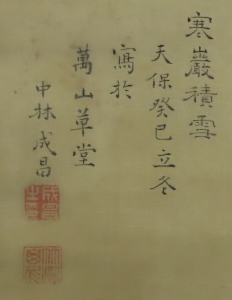 寒巖積雪
天保癸巳立冬
寫於
萬山草堂
中林成昌
成昌
之印